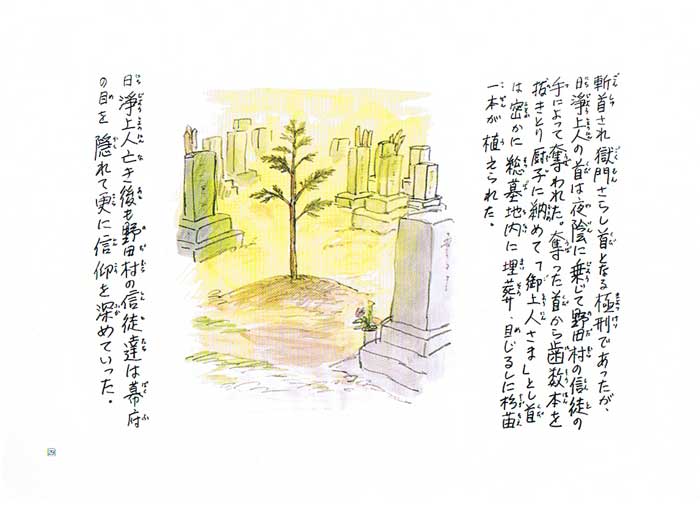 斬首され獄門さらし首となる極刑であったが、
日浄上人の首は夜陰に乗じて野田村の信徒の
手によって奪われた。奪った首から歯数本を
抜きとり厨子に納めて「御上人さま」とし首
は密かに総墓地内に埋葬、目じるしに杉苗
一本が植えられた。
日浄上人亡き後も野田村の信徒達は幕府
の目を隠れて更に信仰を深めていった。